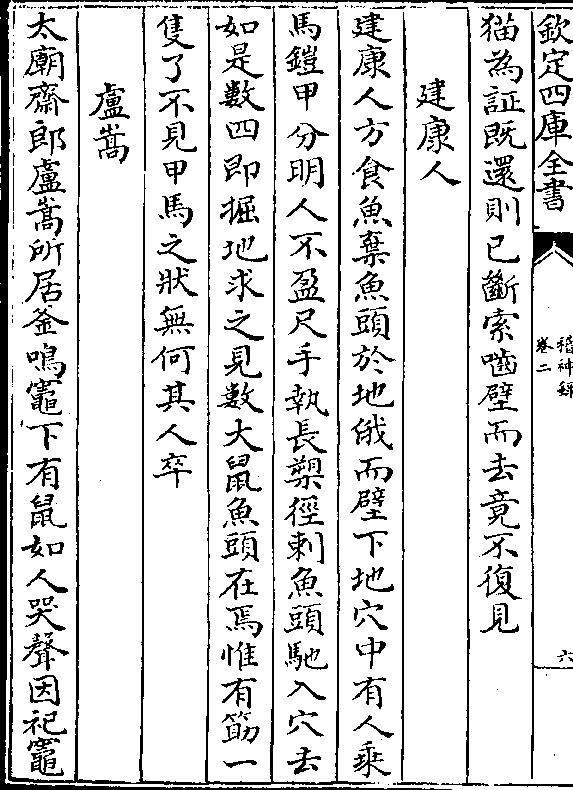 欽定四庫全書
稽神錄
卷二
六
猫為証既還則已斷索嚙壁而去竟不復見
建康人
建康人方食魚棄魚頭於地俄而壁下地穴中有人乗
馬鎧甲分明人不盈尺手執長槊徑刺魚頭馳入穴去
如是數四即掘地求之見數大鼠魚頭在焉惟有筯一
隻了不見甲馬之狀無何其人卒
盧嵩
太廟齋郎盧嵩所居釜鳴竈下有鼠如人哭聲因祀竈